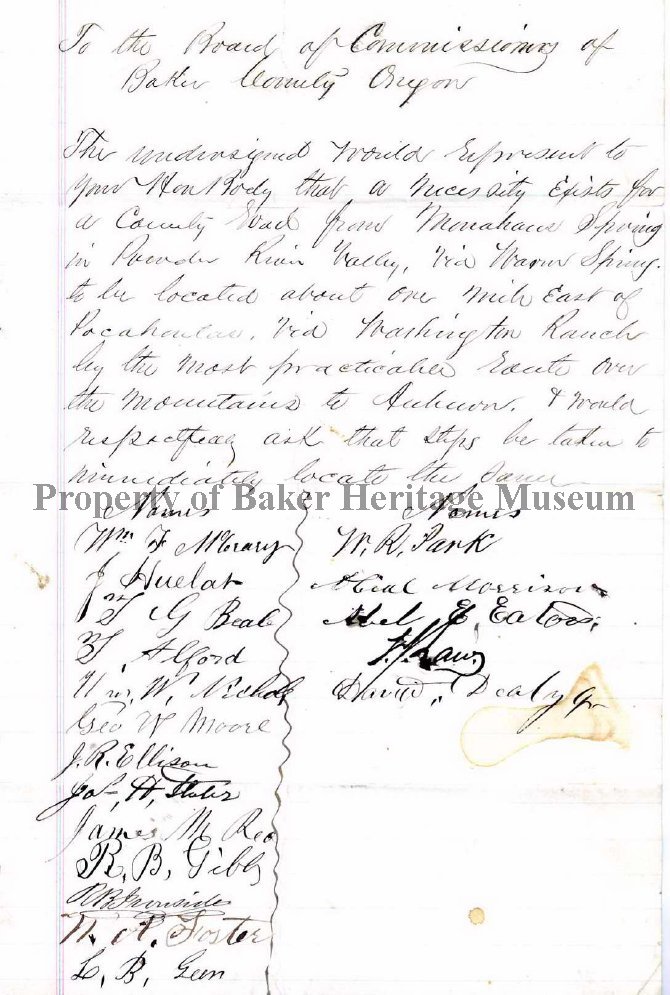 To the Board of Commissioners of
Baker County Oregon
The undersigned would represent to
your Hon Body that a necessity Exists for
a County Road from Monahans Spring
in Powder River Valley, via Warm Spring.
to be located about one mile East of
Pocahontas, via Washington Ranch
by the most practicable Route over
the mountains to Auburn. & would
respectfully ask that steps be taken to
immediately locate the same
Property of Baker Heritage Museum
Names
Names
Wm F McCrary
W. R. Park
J Huelat
Morrison
T G Beal
Abel E. Eaton.
T. Alford
W. Nichols
David, Dealy Jr
Geo W Moore
J. R. Ellison
H,
James M Rea
R. B. Gibbs
R B Ironsides
A. Foster
L. B. Geen